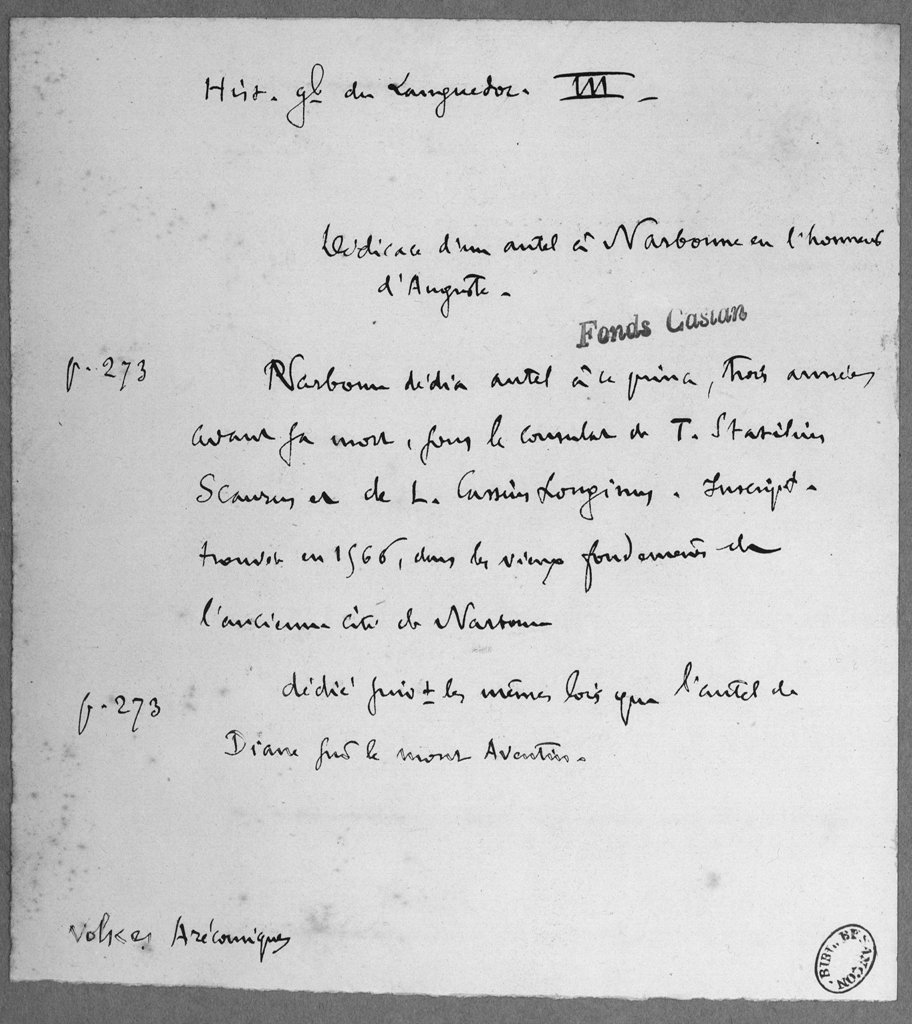 Hist. gl du Languedoc. III –
Dédicace d'un autel à Narbonne en l'honneur
d'Auguste.
Fonds Castan
p. 273
Narbonne dédia autel à ce prince, trois années
avant sa mort, sous le consulat de T. Statilius
Scaurus et de L. Cassius Longinus. Inscript.
trouvée en 1566, dans les vieux fondements de
l'ancienne cité de Narbonne
p. 273
dédié suivt les mêmes lois que l'autel de
Diane sur le mont Aventin.
Volkes Arécomiques
BIBL. BESANÇON